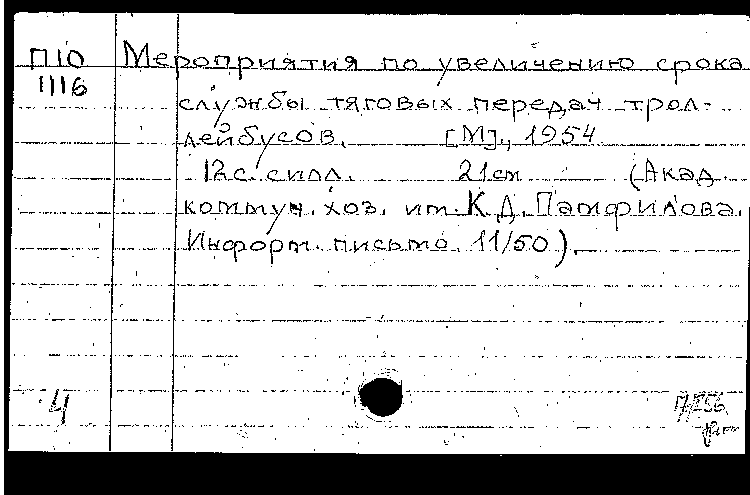 П10 Мероприятия по увеличению срока
1116
службы тяговых передач трол-
лейбусов. [М]., 1954
12с. с илл. 21см (Акад.
коммун. хоз. им. К.Д. Памфилова.
Информ. письмо 11/50).
4